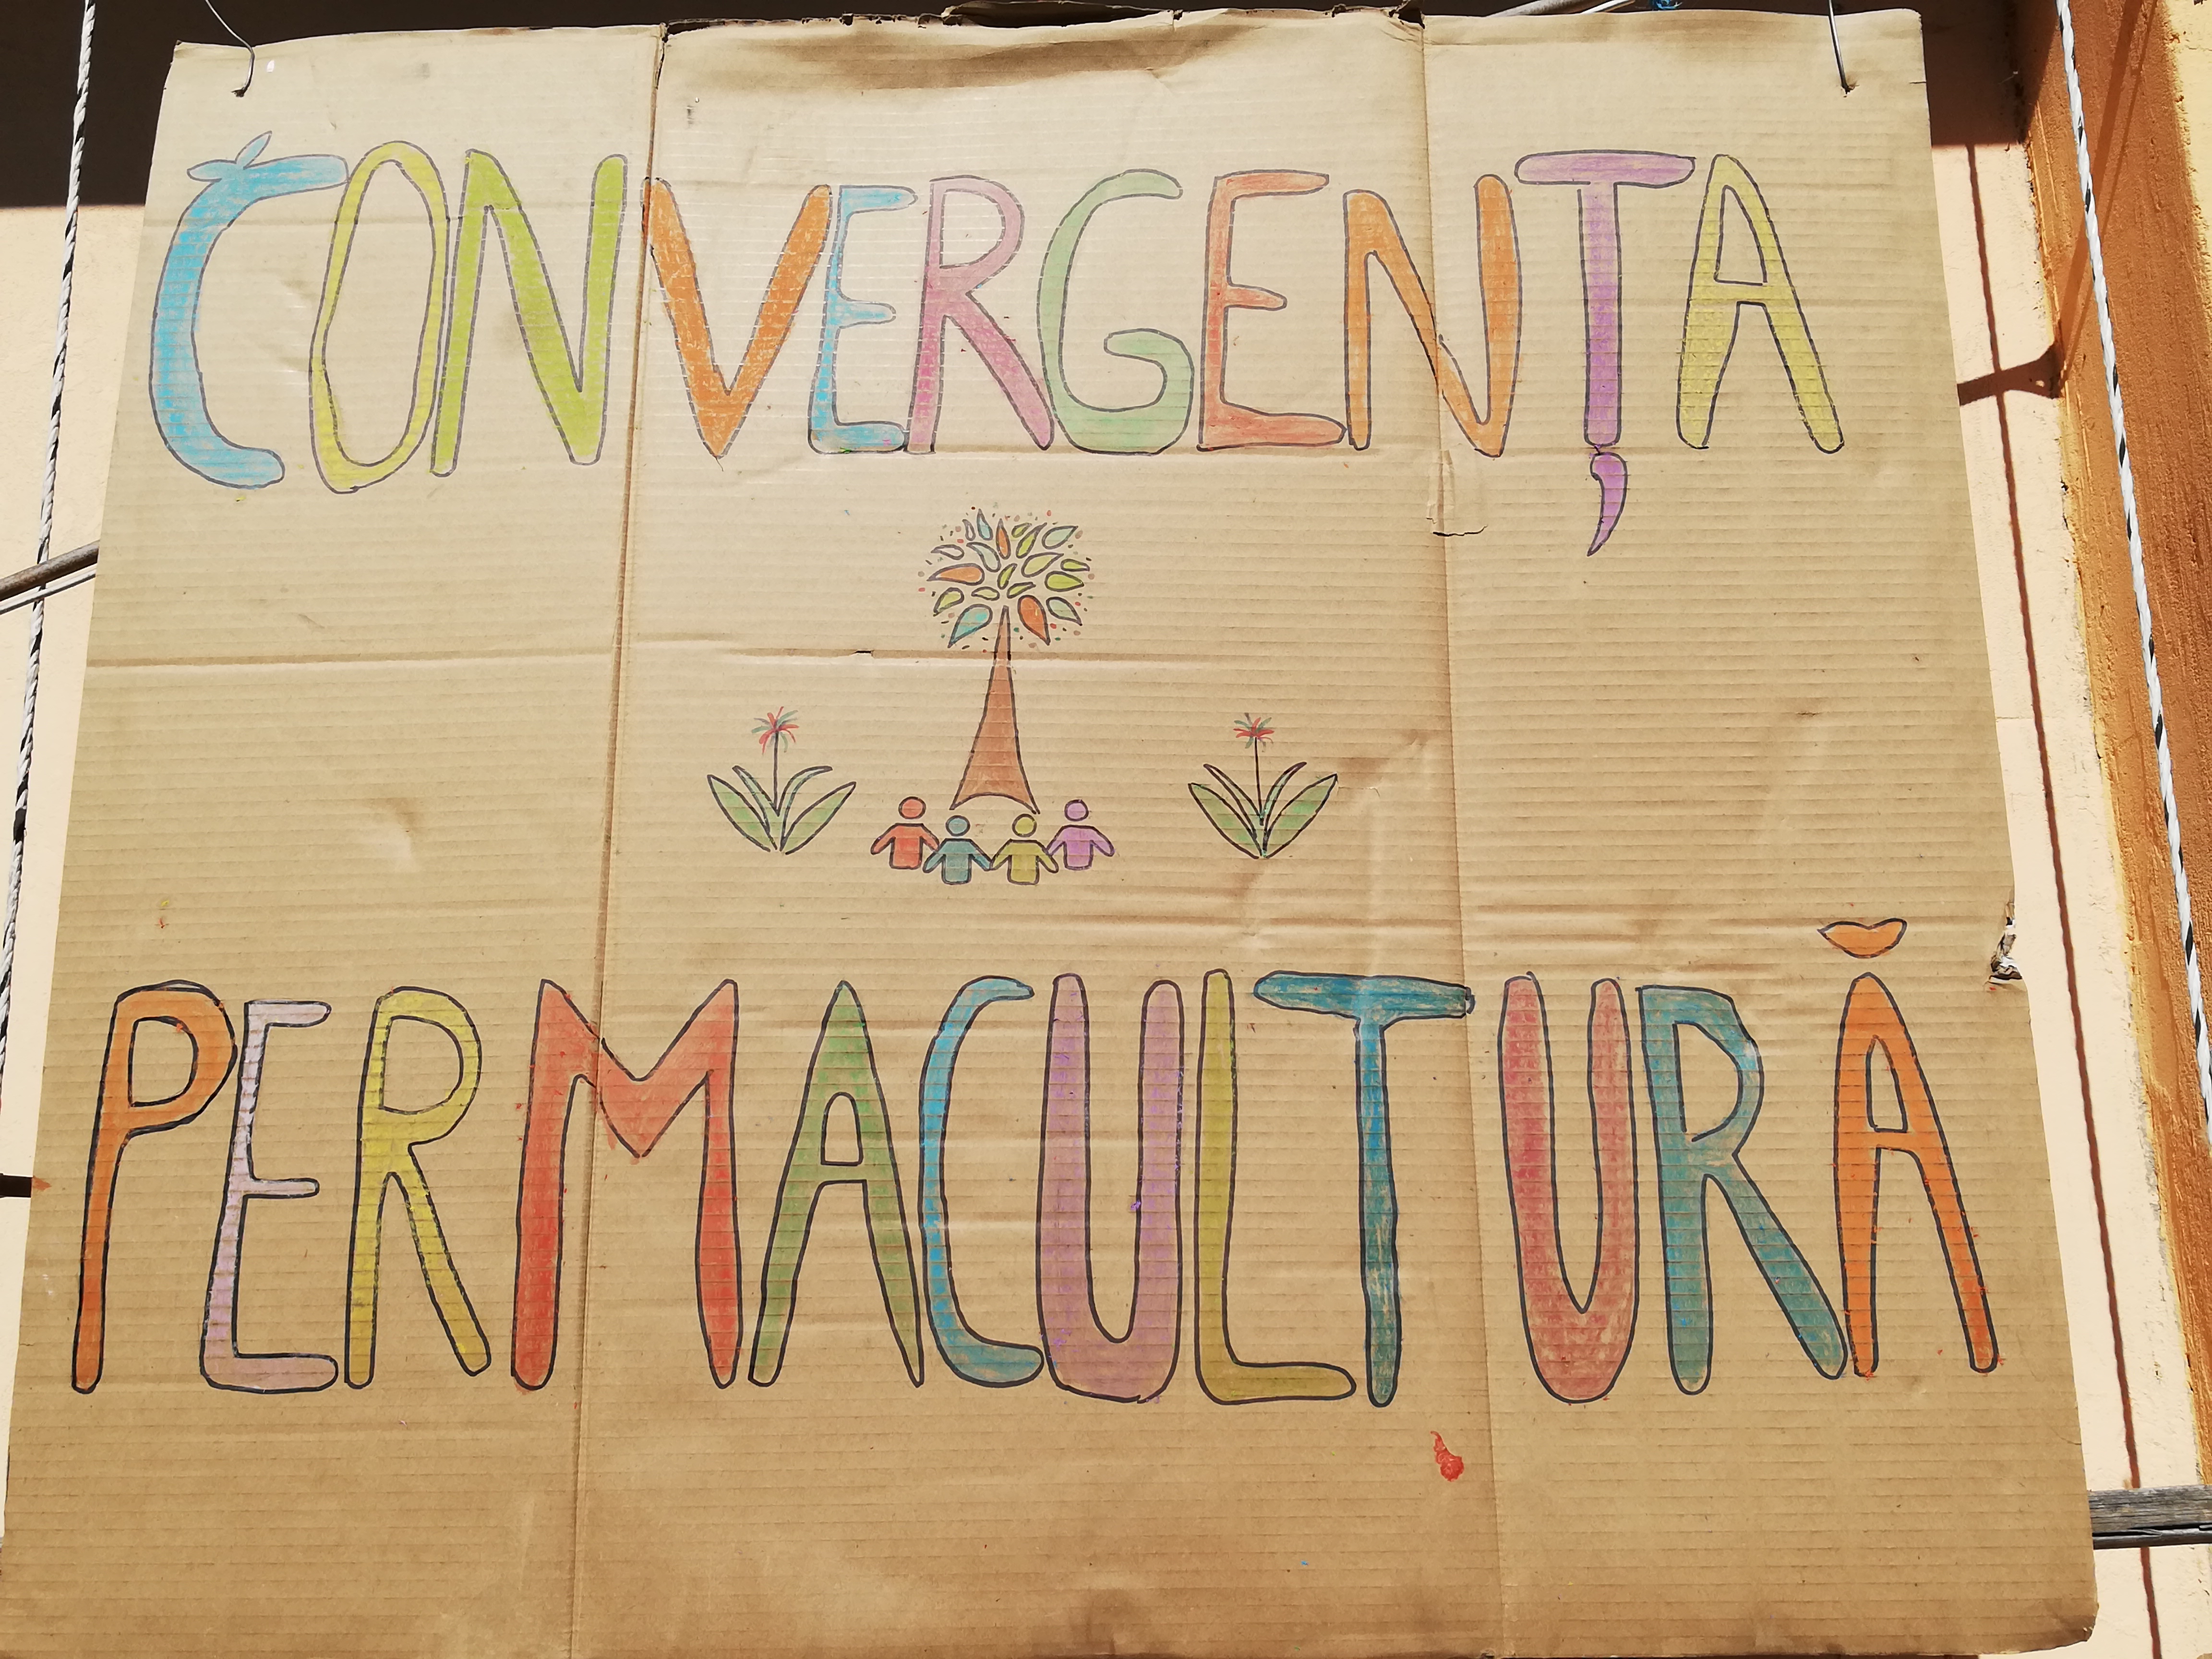 CONVERGENȚA
PERMACULTURĂ